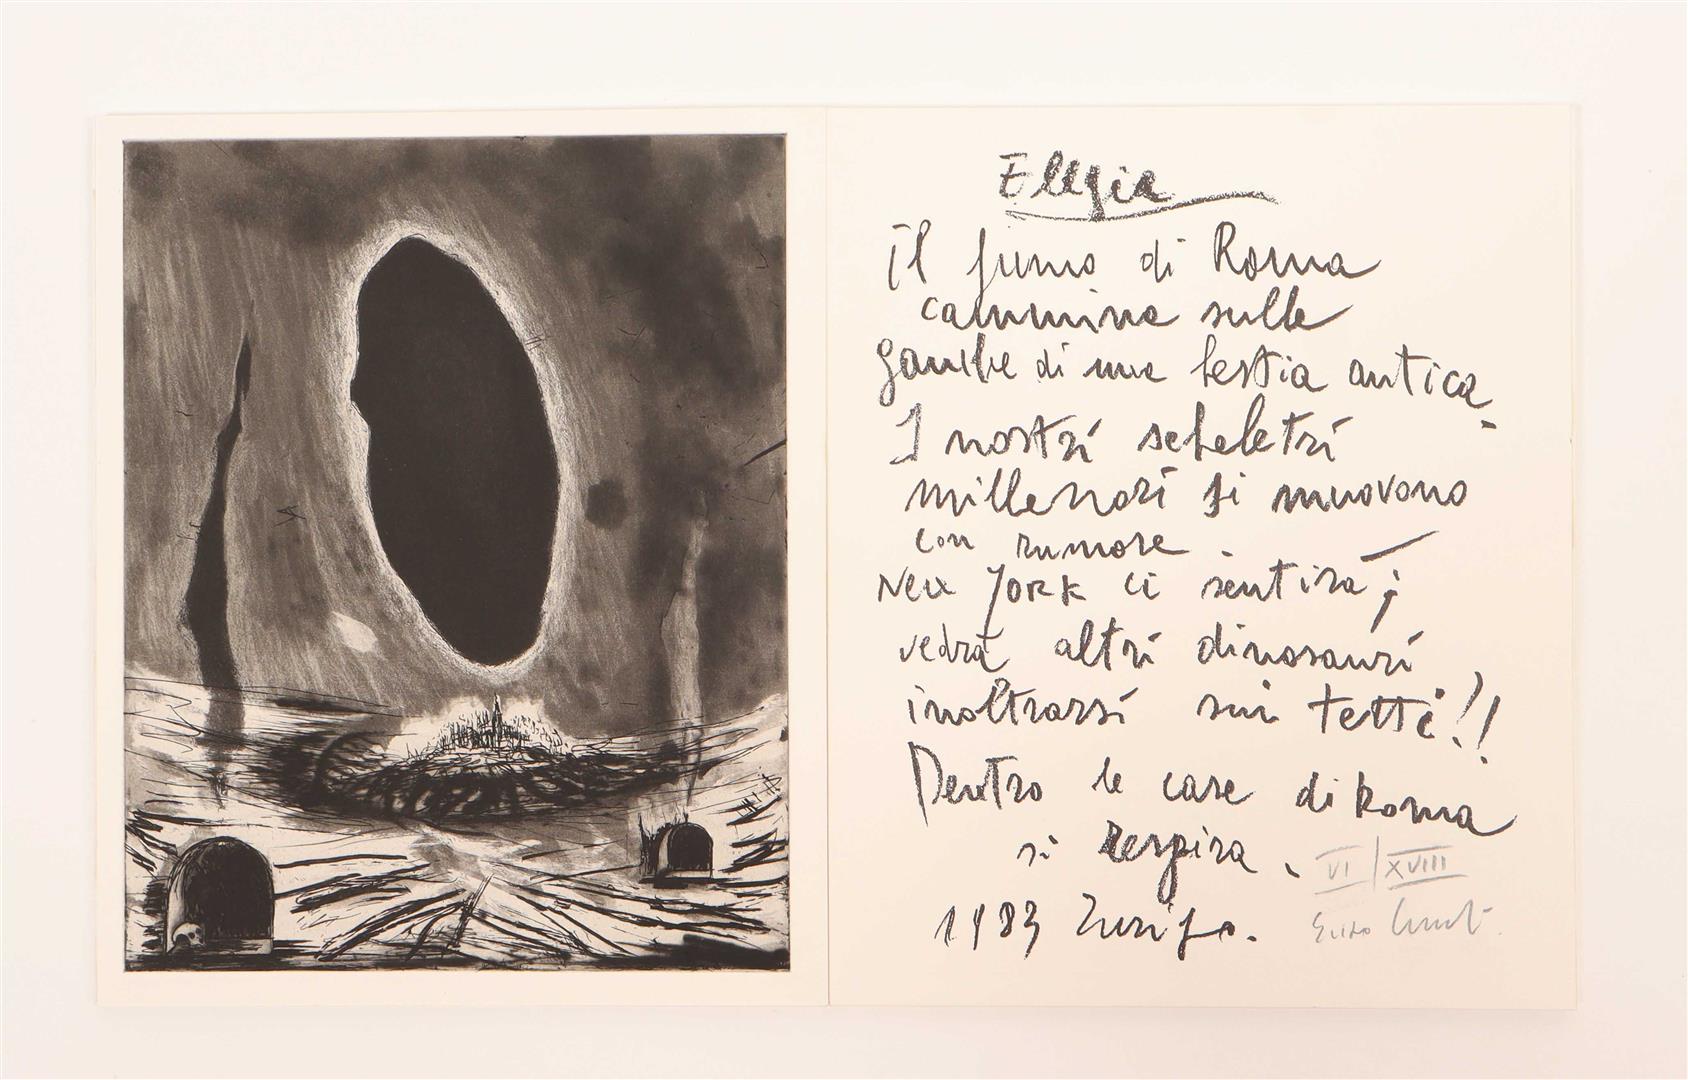 Elegia
Il fumo di Roma
cammina sulle
gambe di una bestia antica.
I nostri scheletri
millenari si muovono
con rumore.
New York ci sentirà;
vedrà altri dinosauri
inoltrarsi sui tetti!!
Dentro le case di Roma
si respira.
VI/XVIII
1983 Zurigo.
Enzo Cucchi